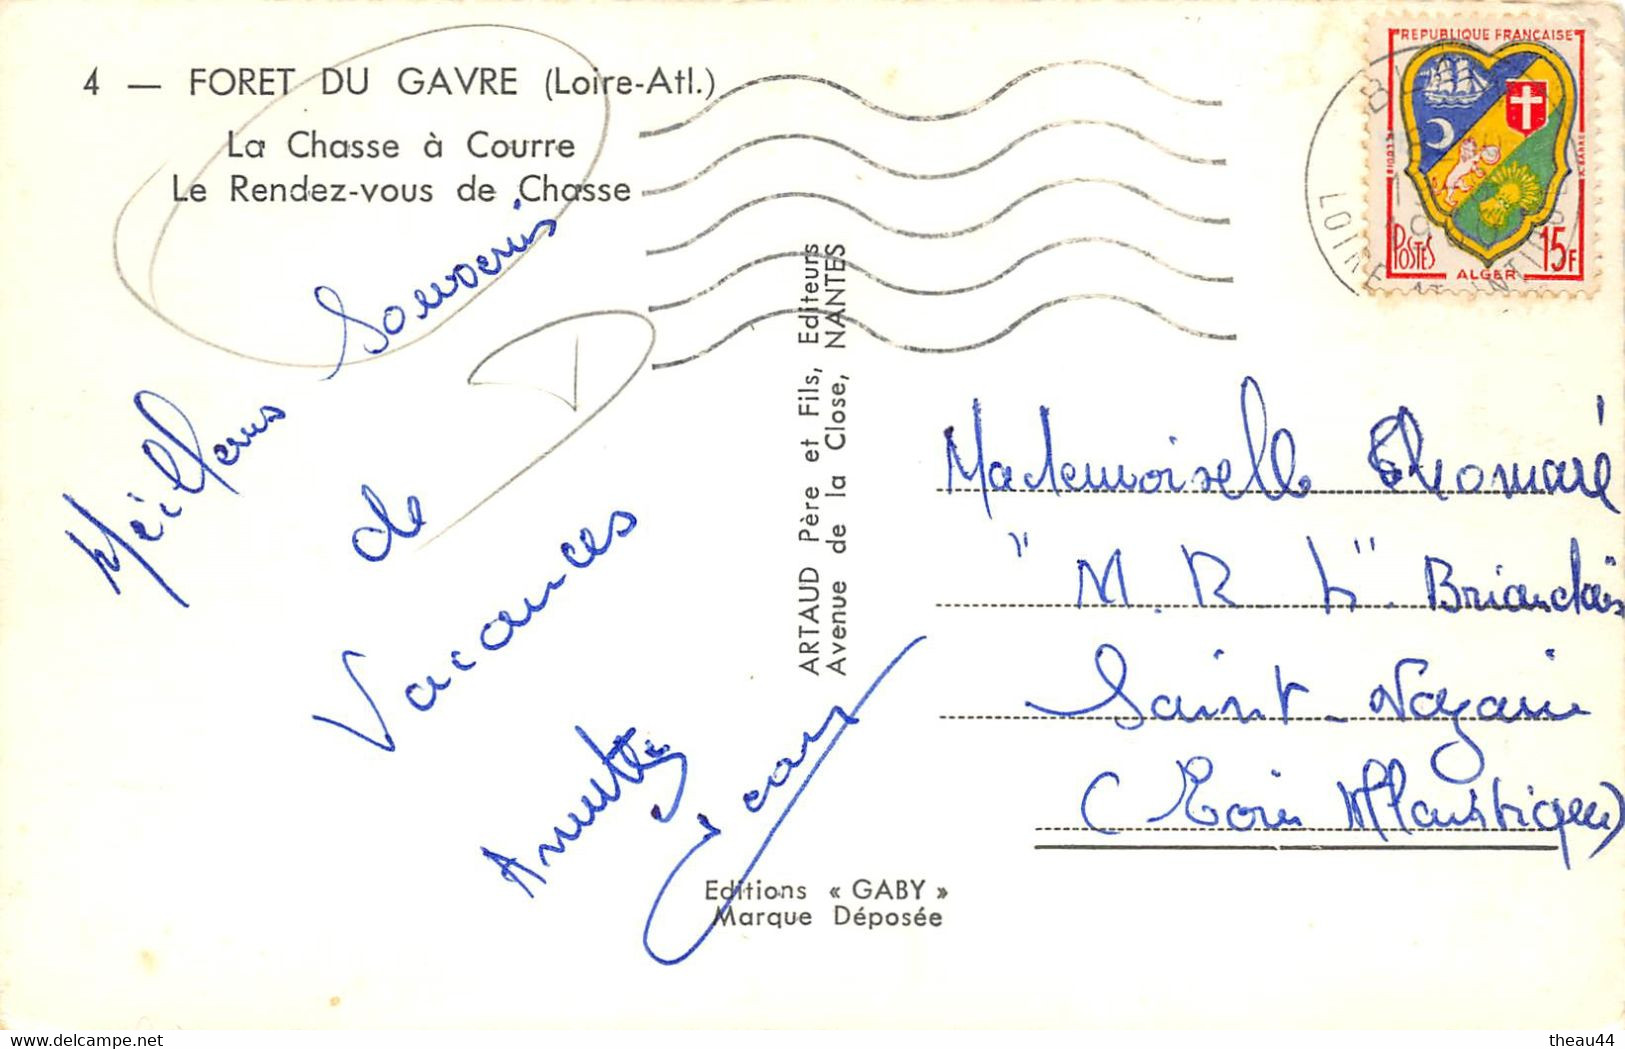 4 — FORET DU GAVRE (Loire-Atl.)
La Chasse à Courre
Le Rendez-vous de Chasse
Meilleurs Souvenirs
de
Vacances
Annette
ARTAUD Père et Fils, Editeurs
Avenue de la Close, NANTES
Editions « GABY »
Marque Déposée
REPUBLIQUE FRANÇAISE
POSTES
ALGER
15F
LOIRE ATLANTIQUE
Mademoiselle Thomaré
"M. R. L". Briandais
Saint-Nazaire
(Loire Atlantique)
delcampe.net
theau44